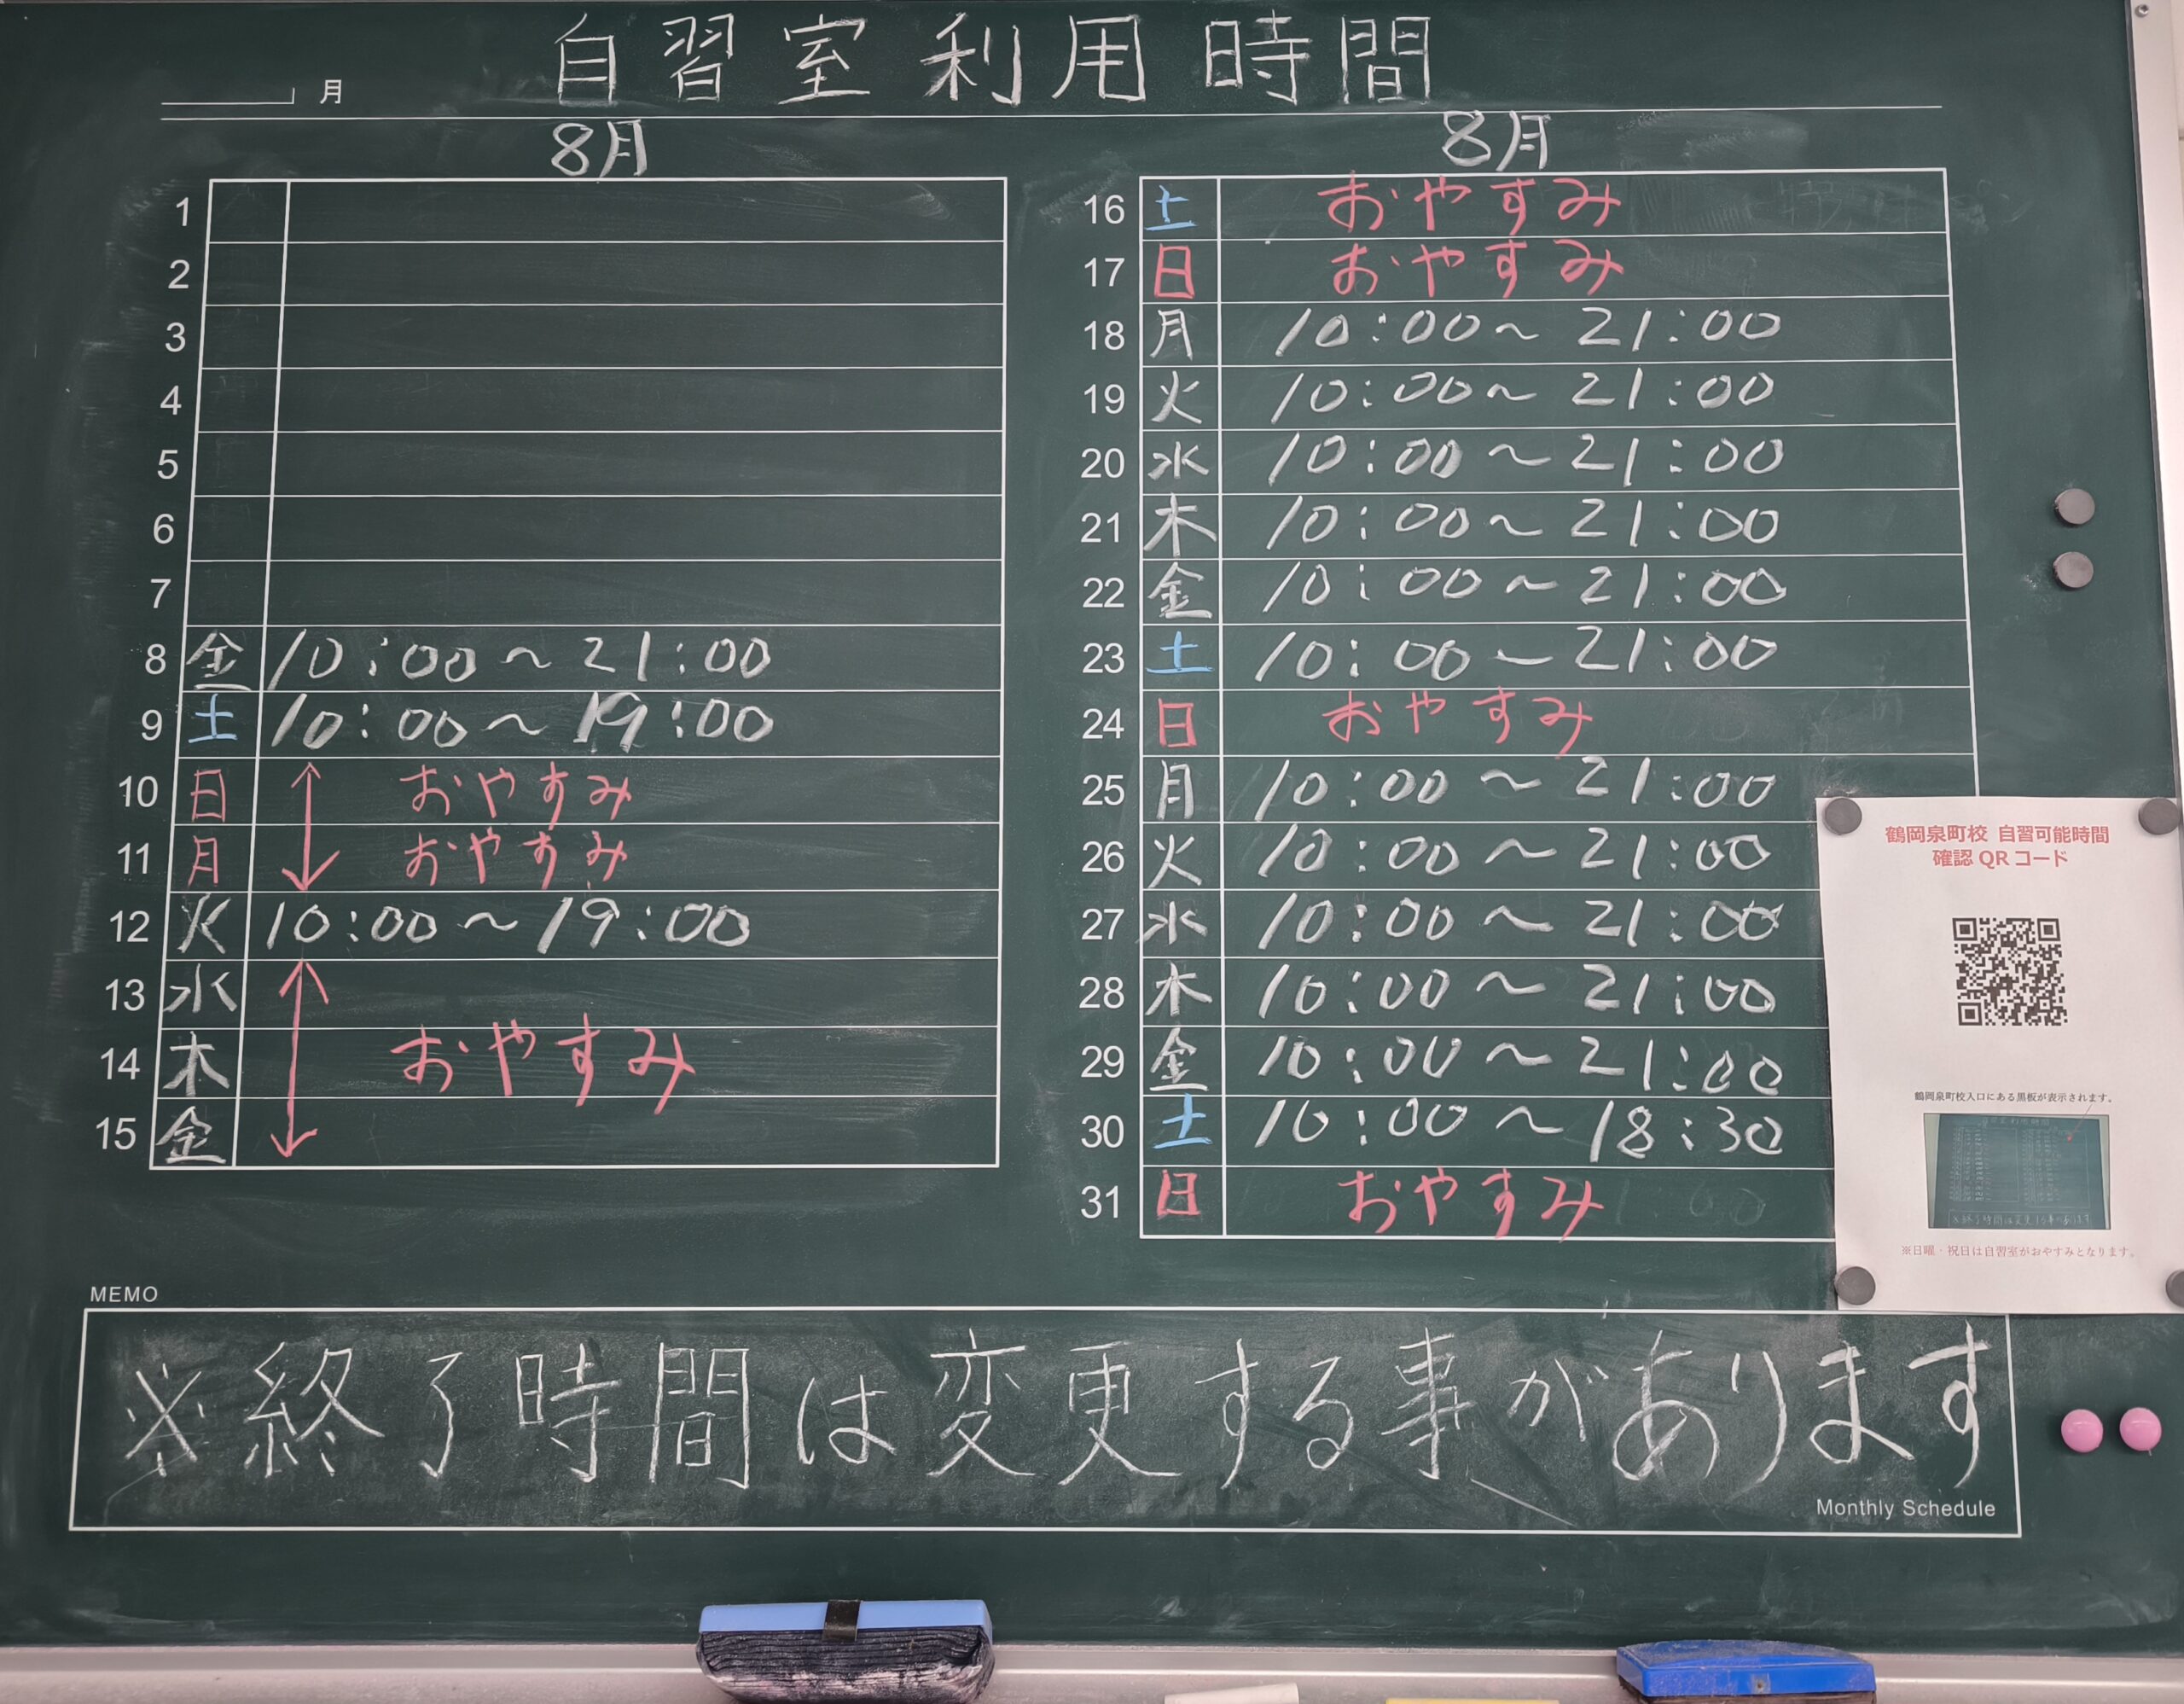 自習室利用時間
月
8月
1
2
3
4
5
6
7
8 金 10:00~21:00
9 土 10:00~19:00
10 日 おやすみ
11 月 おやすみ
12 火 10:00~19:00
13 水
14 木 おやすみ
15 金
8月
16 土 おやすみ
17 日 おやすみ
18 月 10:00~21:00
19 火 10:00~21:00
20 水 10:00~21:00
21 木 10:00~21:00
22 金 10:00~21:00
23 土 10:00~21:00
24 日 おやすみ
25 月 10:00~21:00
26 火 10:00~21:00
27 水 10:00~21:00
28 木 10:00~21:00
29 金 10:00~21:00
30 土 10:00~18:30
31 日 おやすみ
鶴岡泉町校 自習可能時間
確認QRコード
鶴岡泉町校入口にある黒板が表示されます。
※日曜・祝日は自習室がおやすみとなります。
MEMO
※終了時間は変更する事があります
Monthly Schedule